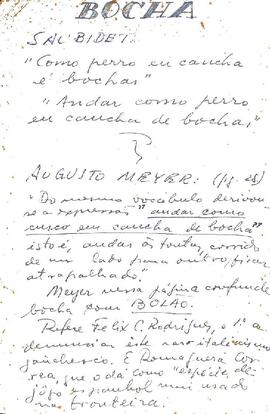 BOCHA
SAUBIDET:
"Como perro en cancha
é bochas"
"Andar como perro
en cancha de bochas"
AUGUSTO MEYER: (pg. 28)
"Do mesmo vocábulo derivou-
se a expressão "andar como
cusco em cancha de bocha"
isto é, andar às tontas, corrido
de um lado para outro, ficar
atrapalhado."
Meyer nessa página confunde
bocha com BOLÃO.
Refere Felix C. Rodrigues, o 1º a
denunciar este raro italicismo
gauchesco. E Romaguera Cor-
rea, que o dá como "espécie de
jôgo espanhol mui usado
na fronteira.